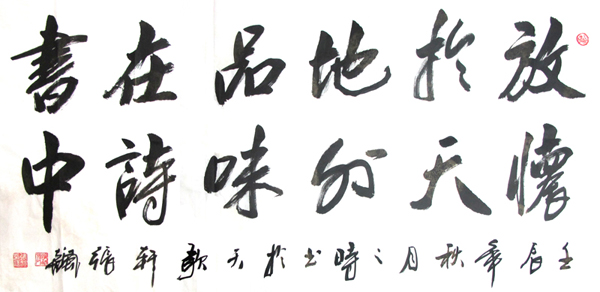 放懷
於天
地外
品味
在詩
書中
壬辰年秋月之時书於天歌軒張